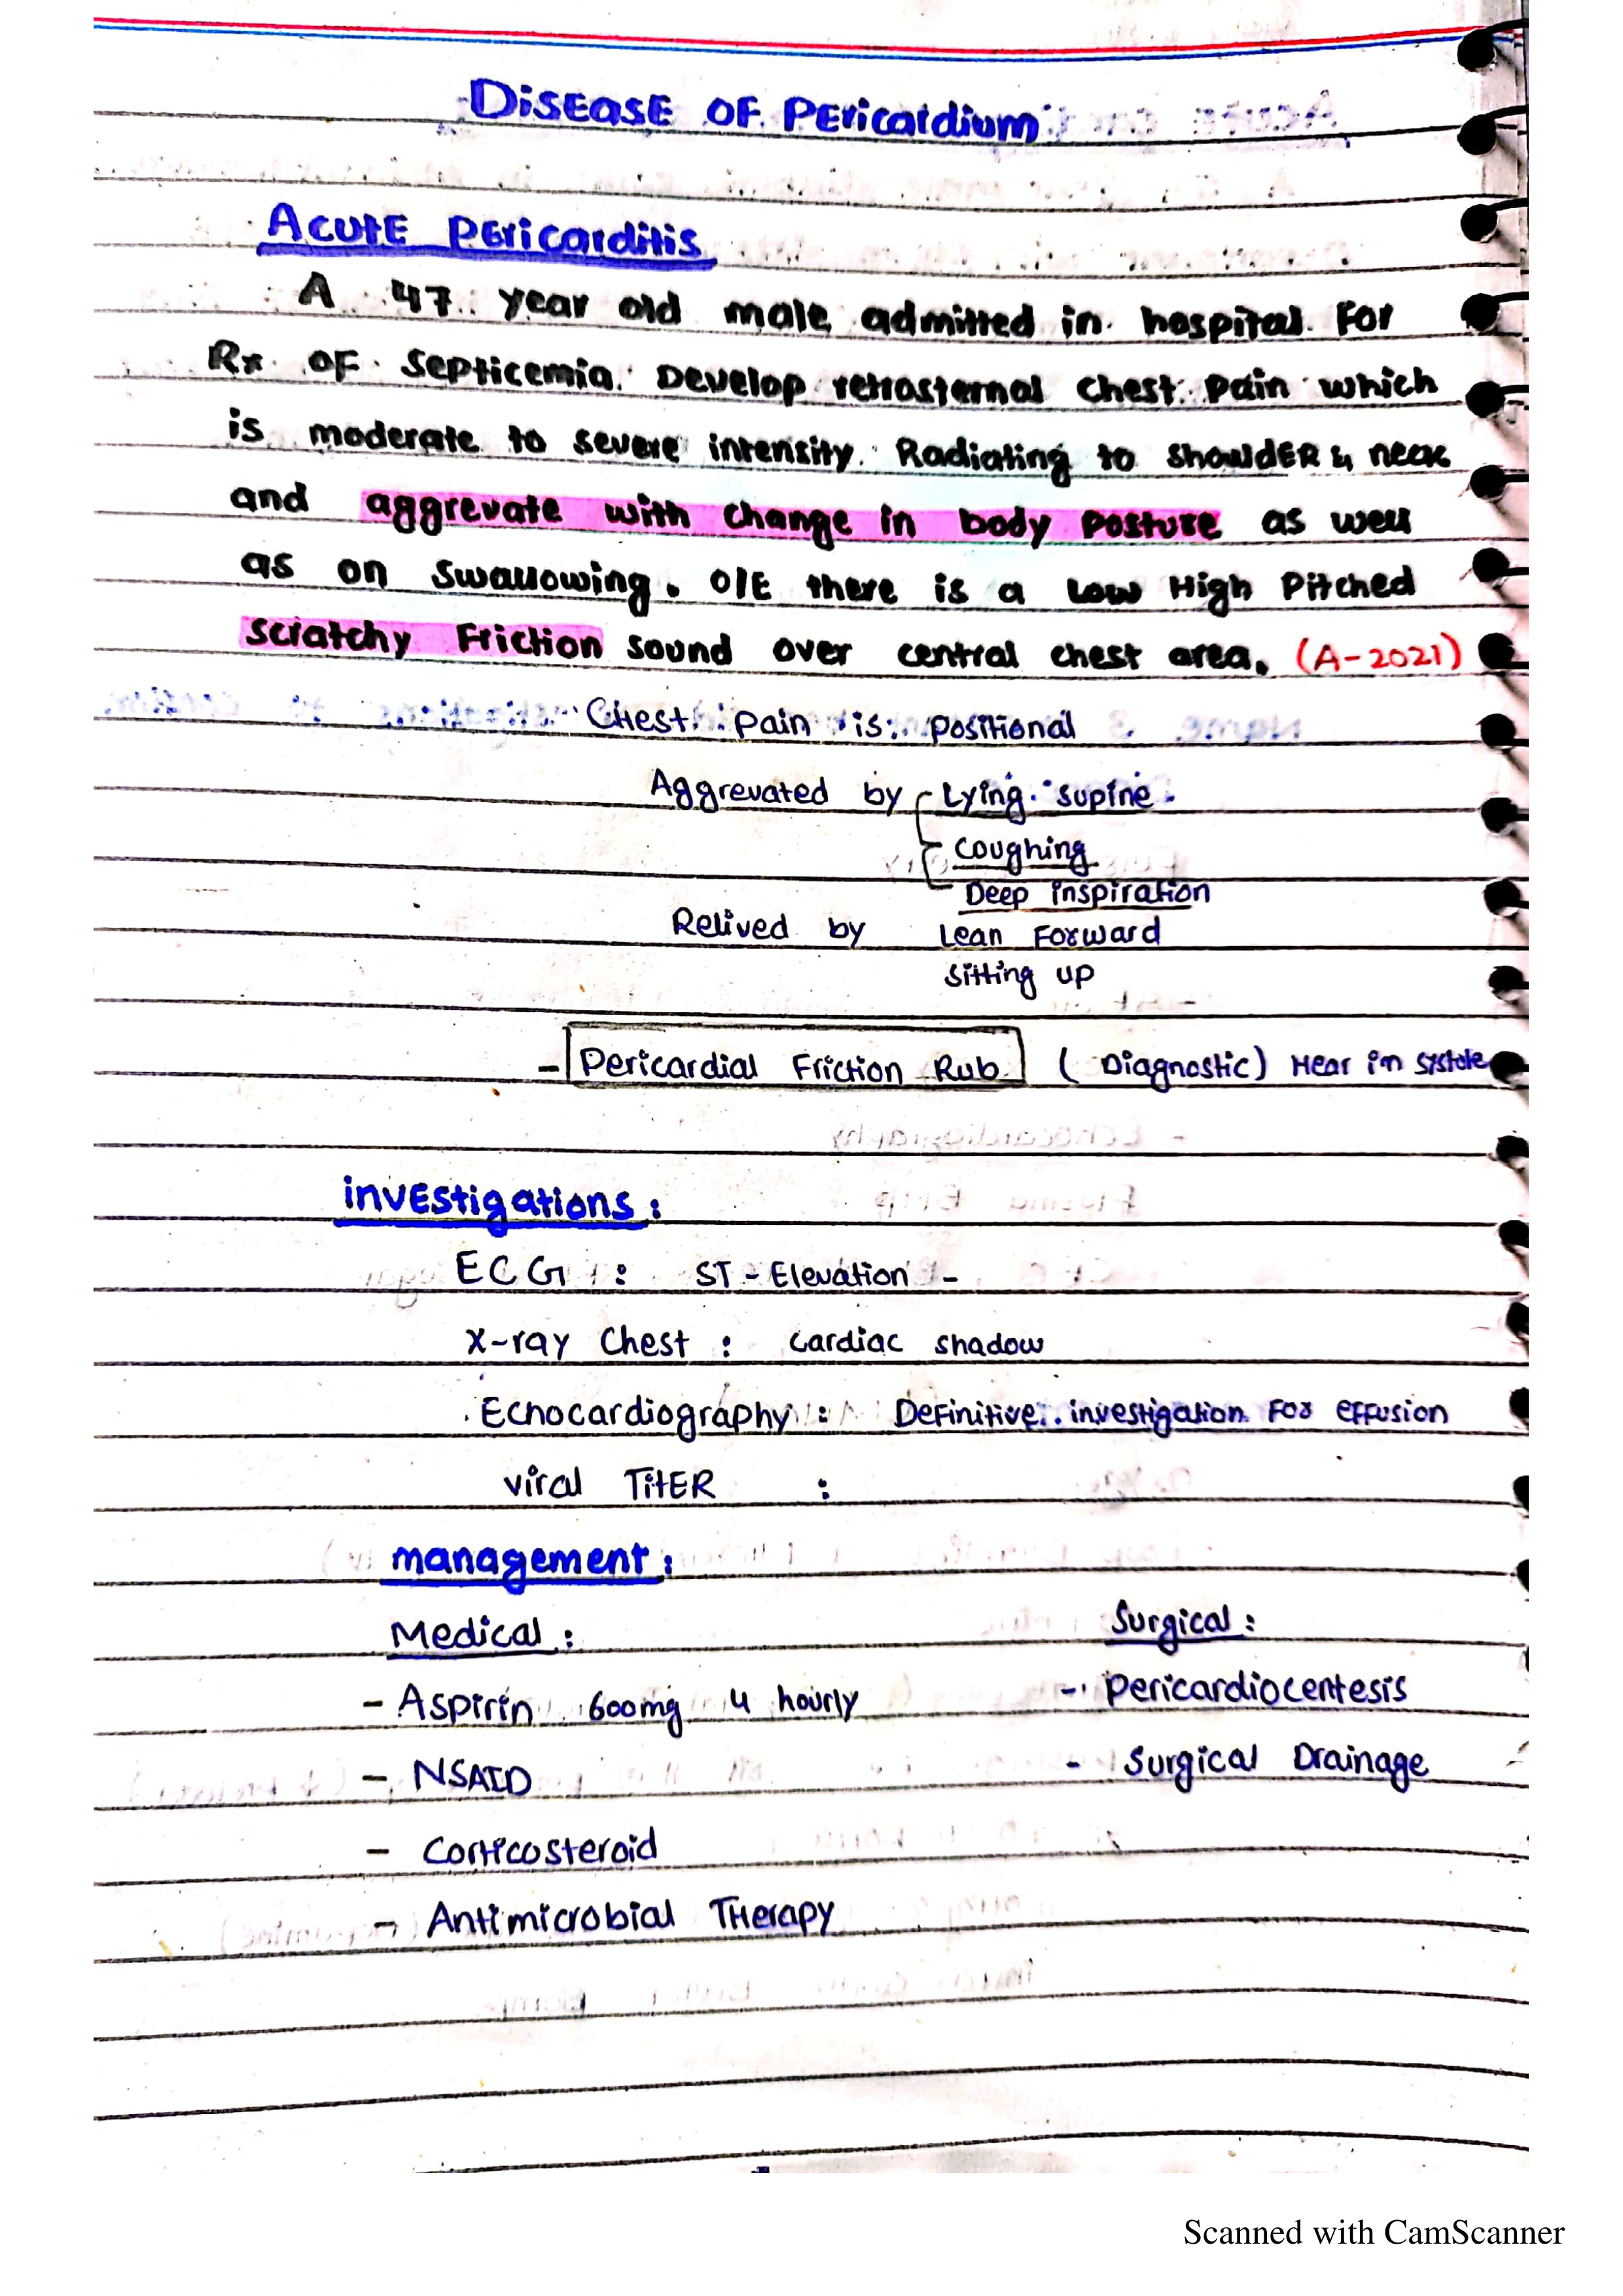 Disease of Pericardium
Acute Pericarditis
A 47 year old male admitted in hospital For
Rx of Septicemia. Develop retrosternal chest pain which
is moderate to severe intensity. Radiating to shoulder & neck
and aggrevate with change in body posture as well
as on swallowing. O/E there is a Low High Pitched
scratchy Friction sound over central chest area. (A-2021)
Chest pain is positional
Aggrevated by Lying supine.
coughing
Deep inspiration
Relived by Lean Forward
sitting up
- Pericardial Friction Rub (Diagnostic) Hear in systole
investigations:
ECG : ST-Elevation -
X-ray Chest : cardiac shadow
Echocardiography : Definitive investigation For effusion
viral Titer :
management:
Medical: Surgical:
- Aspirin 600mg 4 hourly - Pericardiocentesis
- NSAID - Surgical Drainage
- Corticosteroid
- Antimicrobial Therapy
Scanned with CamScanner